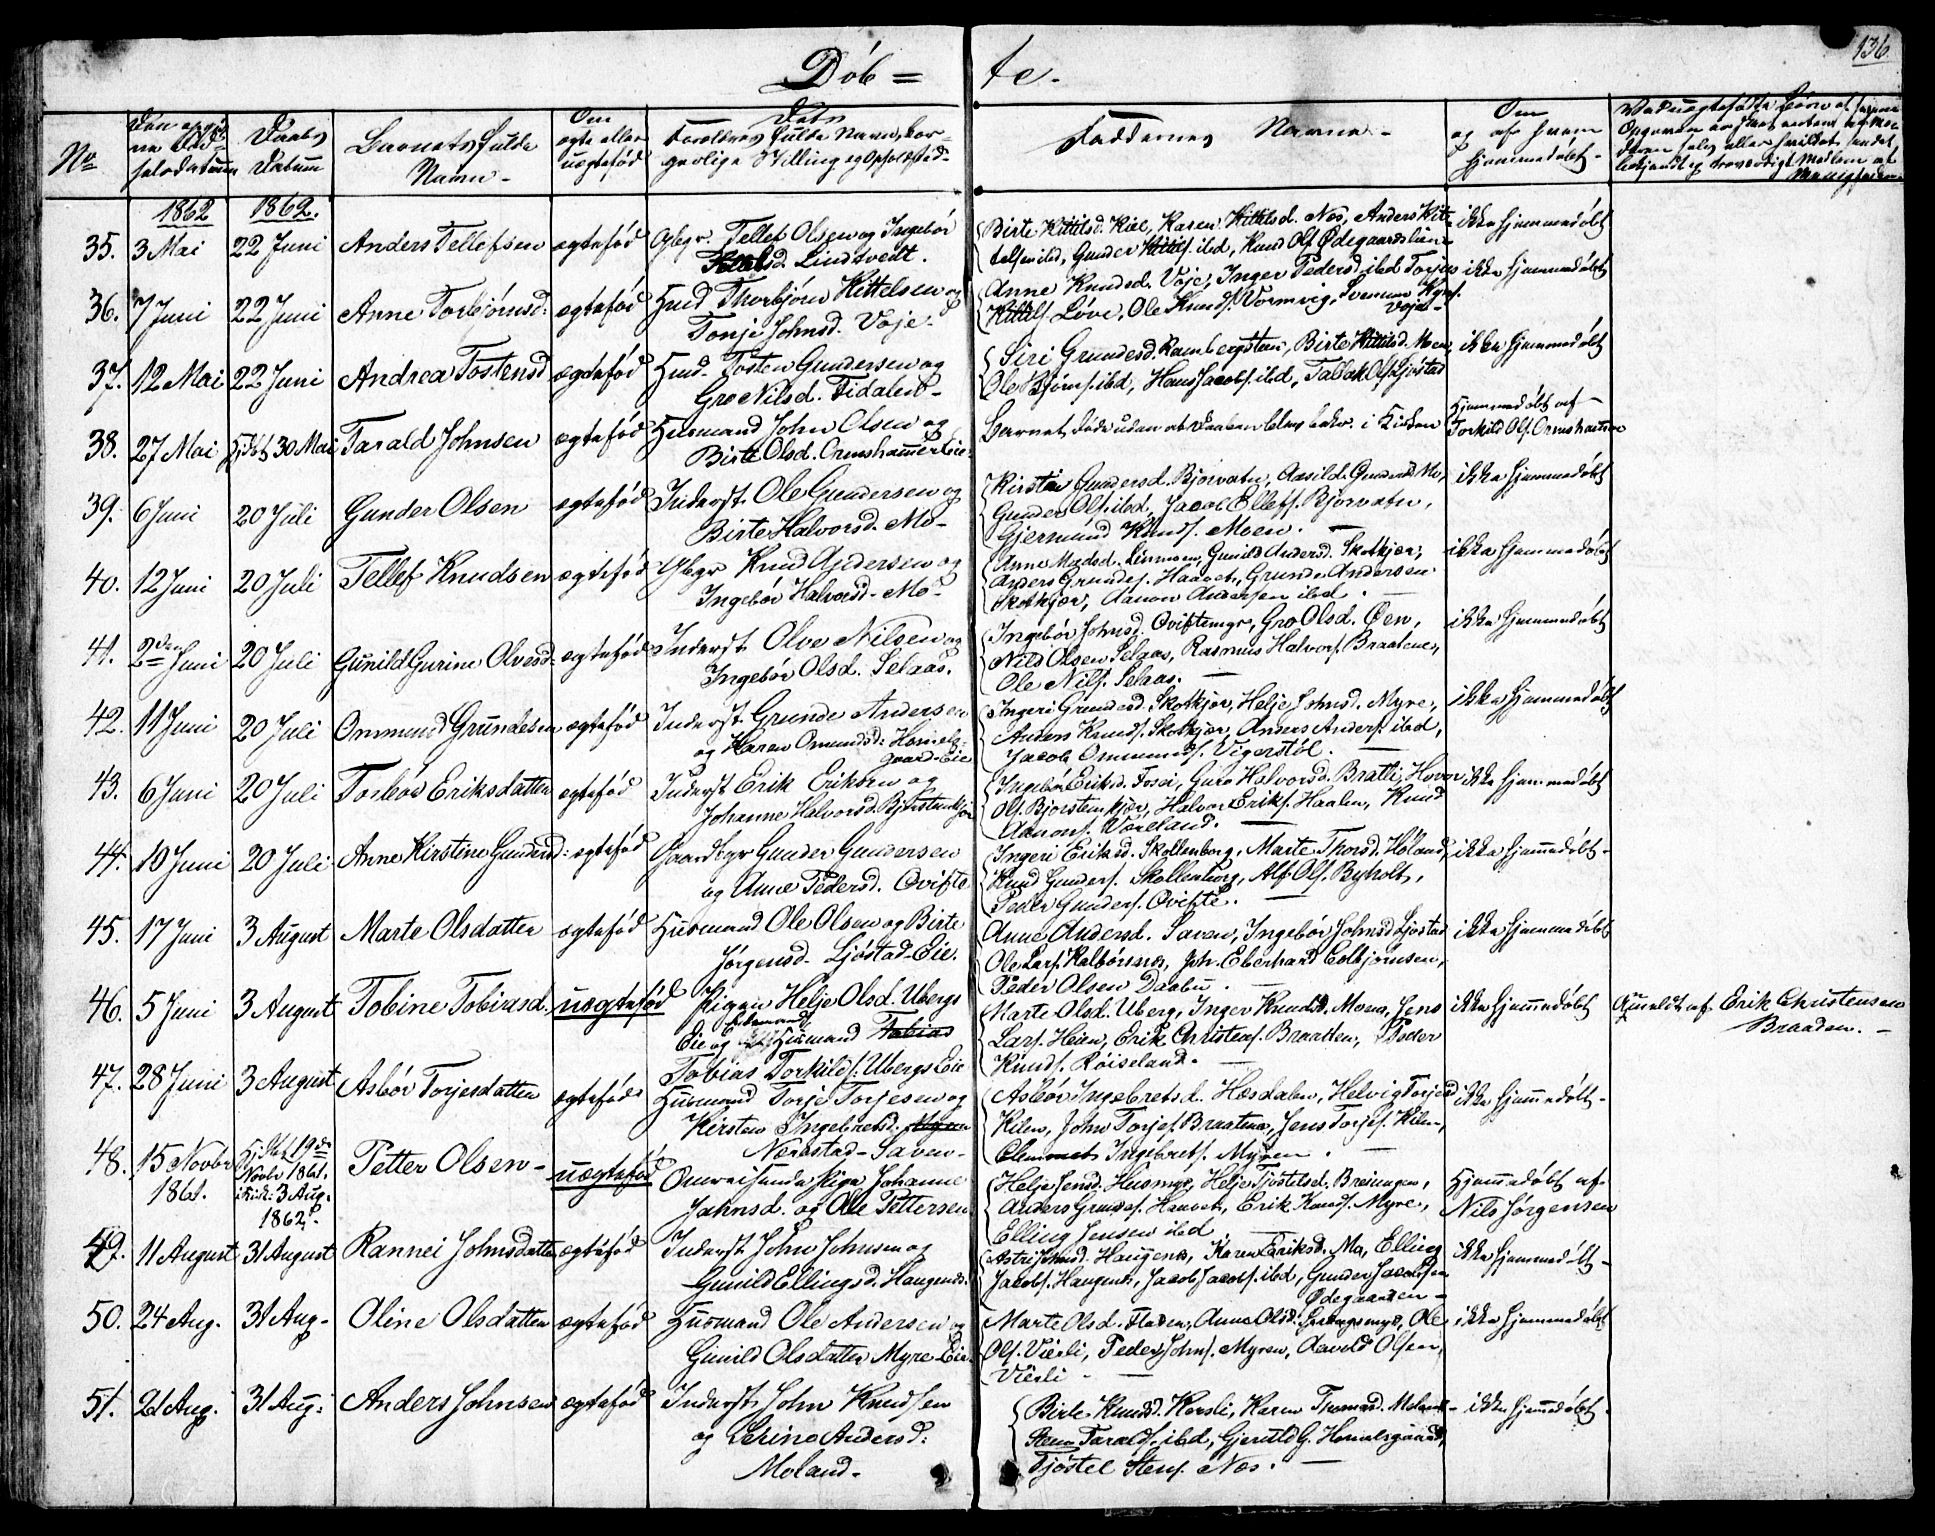 136
Döb = te.
No
Daabs Datum
Barnets fulde Navn -
Om ægte eller uægtefød
Forældres fulde Navn, borgerlige Stilling og Opholdsted -
Faddernes Navne -
Om og af hvem hjemmedøbt -
1862 1862.
35. 3 Mai 22 Juni Anders Tellefsen ægtefød Tellef Olsen og Ingebør
Lindtvedt.
Birte Kittilsd. Karen Kittilsd. Næs, Anders Kit-
telsen ibd, Gunder Kittils. ibd, Knud Ols. Ødegaardslien - ikke hjemmedøbt
36. 7 Juni 22 Juni Anne Torbjørnsd. ægtefød Husmd Thorbjørn Kittelsen og
Tonje Johnsd. Voje.
Anne Knudsd. Voje, Inger Pedersd. ibd Torjus
Kittils. Løve, Ole Knuds. Vormvig, Voje - ikke hjemmedøbt
37. 12 Mai 22 Juni Andrea Tostensd ægtefød Husmd. Tosten Gundersen og
Gro Nilsd. Fidalen -
Siri Grundesd. Rambergsteen, Birte Kittilsd. Moen,
Ole Bjørns. ibd, Hans Jacobs. ibd, Ols. Ljøstad ikke hjemmedøbt
38. 27 Mai Hj.dbt 30 Mai Tarald Johnsen ægtefød Husmand John Olsen og
Birte Olsd. Ormshammer Eie.
Barnet døde uden at Daaben blev bekr. i Kirken
Hjemmedøbt af Torkild Ols. Ormshammer
39. 6 Juni 20 Juli Gunder Olsen ægtefød Inderst. Ole Gundersen og
Birte Halvorsd. Mo -
Kirsten Gundersd. Bjorvatn, Aasild Gundersd. Mo,
Gunder Ols. ibd, Jacob Ellefs. Bjorvatn,
Gjermund Knuds. Moen. - ikke hjemmedøbt
40. 12 Juni 20 Juli Tellef Knudsen ægtefød Knud Andersen og
Ingebør Halvorsd. Mo -
Anne Madsd. Linmoen, Gunild Andersd. Skotkjær,
Anders Grundes. Haavet, Grunde Andersen
Skotkjær, Aanon Andersen ibd. ikke hjemmedøbt
41. 2den Juni 20 Juli Gunild Gurine Olvesd. ægtefød Inderst Olve Nilsen og
Ingebør Olsd. Selaas.
Ingebør Johnsd. Qviftemyr, Gro Olsd. Øen,
Nils Olsen Selaas, Rasmus Halvors. Braatene,
Ole Nils. Selaas. - ikke hjemmedøbt
42. 11 Juni 20 Juli Ommund Grundesen ægtefød Inderst Grunde Andersen
og Karen Omundsd. Hommelsgaard Eie
Ingeri Grundesd. Skotkjær, Helje Johnsd. Myre,
Anders Knuds. Skotkjær, Anders Anders. ibd,
Jacob Ommunds. Vigerstøl. - ikke hjemmedøbt
43. 6 Juni 20 Juli Torbør Eriksdatter ægtefød Inderst Erik Eriksen og
Johanne Halvorsd. Bjorstemkjær
Ingebør Eriksd. Fosse, Guro Halvorsd. Bratli,
Ols. Bjorstemkjær, Halvor Eriks. Haalen, Knud
Aanons. Vøreland. - ikke hjemmedøbt
44. 10 Juni 20 Juli Anne Kirstine Gundersd: ægtefød Gaardbgr Gunder Gundersen
og Anne Pedersd. Qvifte
Ingeri Eriksd. Skollenborg, Marte Thorsd. Høland,
Knud Gunders. Skollenborg, Alf Ols. Byholt,
Peder Gunders. Qvifte. - ikke hjemmedøbt -
45. 17 Juni 3 August Marte Olsdatter ægtefød Husmand Ole Olsen og Birte
Jørgensd. Ljøstad-Eie.
Anne Andersd. Saven, Ingebør Johnsd Ljøstad
Ole Lars. Kalbørnæs, Joh. Eberhard Eolbjørnsen,
Peder Olsen Dalen. - ikke hjemmedøbt
46. 5 Juni 3 August Tobine Tobiasd. uægtefød Pigen Helje Olsd. Ubergs
Eie og Husmand Tobias
Tobias Torkilds: Ubergs Eie
Marte Olsd. Uberg, Inger Knudsd. Moen, Jens
Lars. Heien, Erik Christens. Braaten, Peder
Knuds. Røiseland. - ikke hjemmedøbt Anmeldt af Erik Christensen
Braaden. -
47. 28 Juni 3 August Asbør Torjesdatter ægtefød Husmand Torje Torjesen og
Kirsten Ingebretsd.
Nærestad - Saven -
Asbør Ingebretsd. Hæsdalen, Helvig Torjesd
Kilen, John Torjes. Braatene, Jens Torjes. Kilen,
Clemmet Ingebrets. Myren. - ikke hjemmedøbt -
48. 15 Novbr 1861. Hj.dbt 19de Novbr 1861. i Kirk: 3 Aug. 1862. Petter Olsen - uægtefød Omreisende Pige Johanne
Johnsd. og Ole Pettersen
Helje Jensd. Husmyr, Helje Tjøstelsd. Breiungen,
Anders Grundes. Haavet, Erik Knuds. Myre,
Elling Jensen ibd - Hjemmedøbt af Nils Jørgensen
49. 11 August 31 August Rannei Johnsdatter ægtefød Inderst John Johnsen og
Gunild Ellingsd. Haugene.
Astri Johnsd. Haugene, Karen Eriksd. Mo, Elling
Jacobs. Haugene, Jacob Jacobs. ibd, Gunder Jacobsen
Ødegaarden - ikke hjemmedøbt -
50. 24 Aug. 31 Aug. Oline Olsdatter ægtefød Husmand Ole Andersen og
Gunild Olsdatter Myre-Eie.
Marte Olsd. Staven, Anna Olsd. Ole
Ols. Vierli, Peder Johns. Myren, Aavold Olsen
Vierli - ikke hjemmedøbt
51. 21 Aug. 31 Aug. Anders Johnsen ægtefød Inderst John Knudsen
og Serine Andersd:
Moland -
Birte Knudsd. Hersli, Karen Thomasd. Moland
Sten Taralds. ibd, Gjeruld G. Hommelsgaard,
Tjøstel Stens. Næs. - ikke hjemmedøbt.